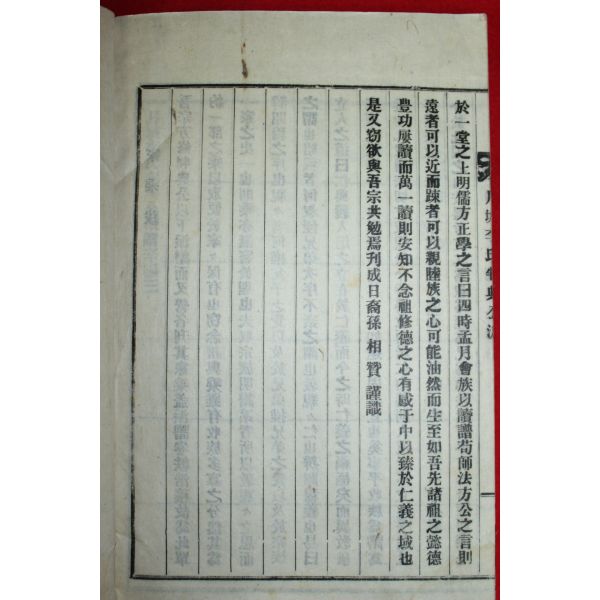 於一堂之上明儒方正學之言曰四時孟月會族以讀譜苟師法方公之言則
遠者可以近而踈者可以親睦族之心可能油然而生至如吾先諸祖之懿德
豐功屢讀而萬一讀則安知不念祖修德之心有感于中以臻於仁義之域也
是又窃欲與吾宗共勉焉刊成日裔孫 相贊 謹識